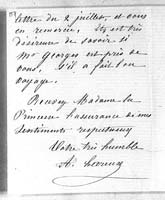 lettre du 2 juillet, et vous
en remercie, Il est très
désireux de savoir si
Mr Georges est près de
vous, s'il a fait bon
voyage.
Madame la
Princesse l'assurance de mes
Sentiments respectueux
Votre très humble